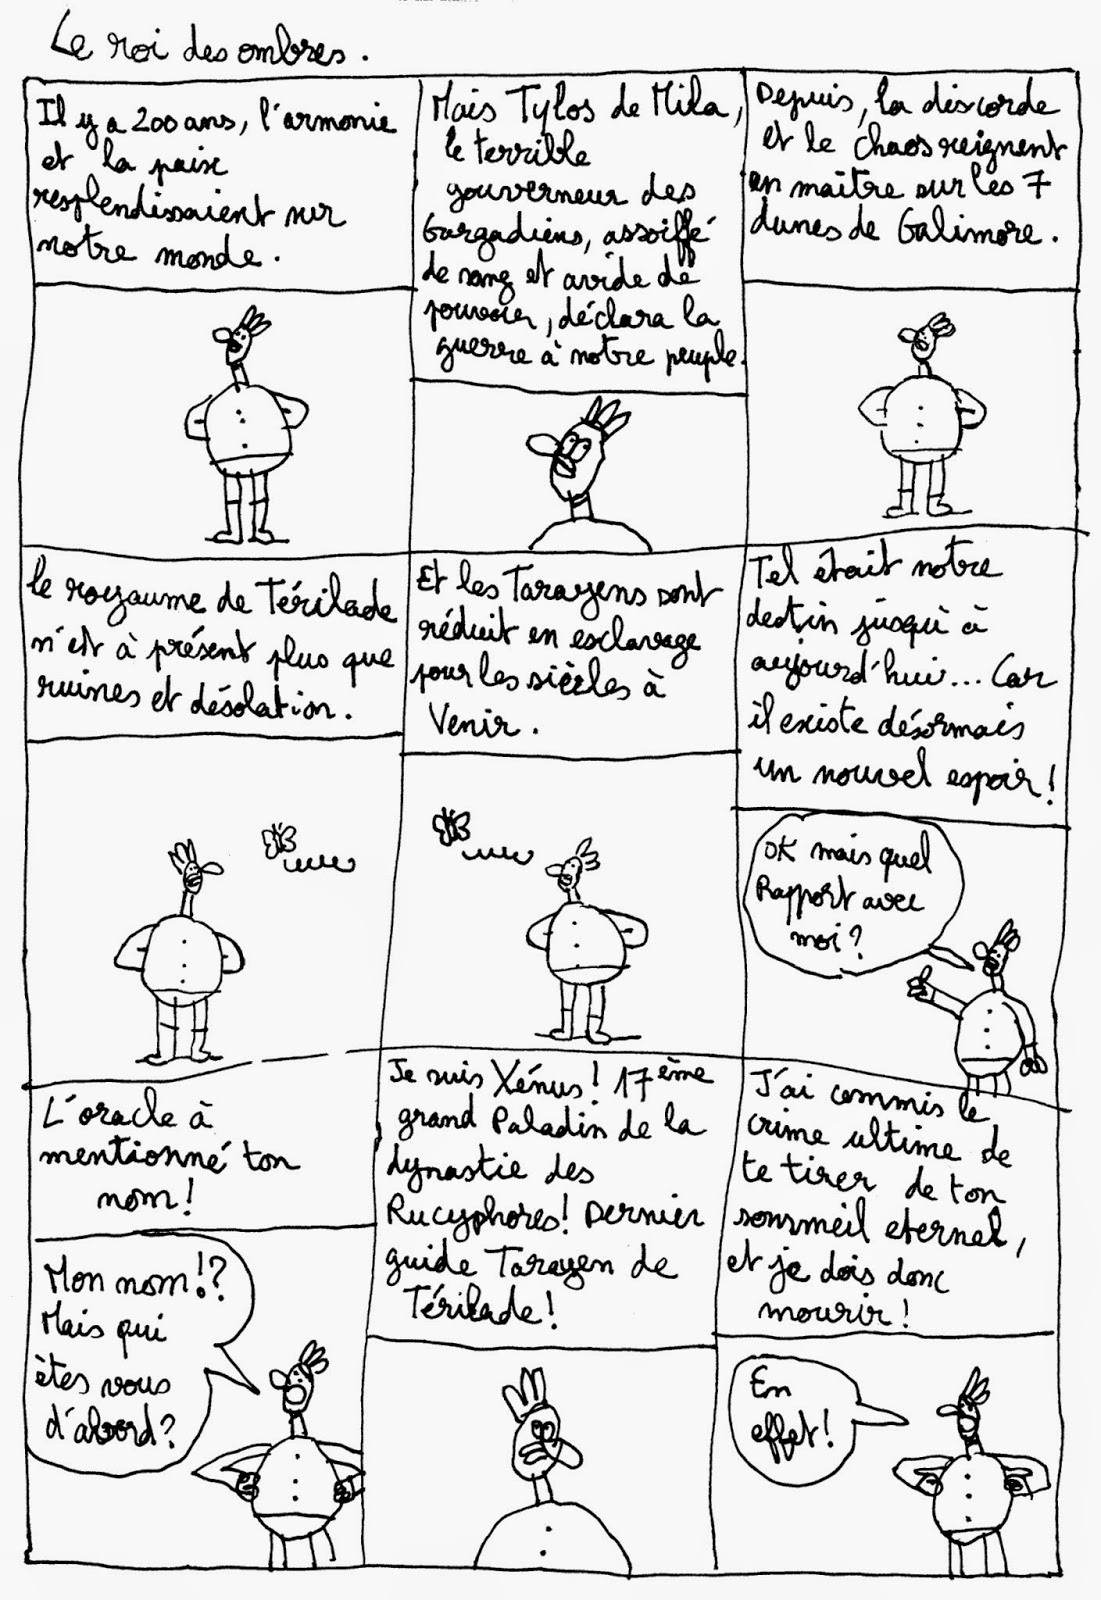 Le roi des ombres.
Il y a 200 ans, l'armonie
et la paix
resplendissaient sur
notre monde.
Mais Tylos de Mila,
le terrible
gouverneur des
Gargadiens, assoiffé
de sang et avide de
pouvoir, déclara la
guerre à notre peuple.
Depuis, la discorde
et le chaos reignent
en maître sur les 7
dunes de Galimore.
Le royaume de Térilade
n'est à présent plus que
ruines et désolation.
Et les Tarayens sont
réduit en esclavage
pour les siècles à
Venir.
Tel était notre
destin jusqu'à
aujourd'hui... Car
il existe désormais
un nouvel espoir!
OK mais quel
Rapport avec
moi?
L'oracle à
mentionné ton
nom!
Mon nom!?
Mais qui
êtes vous
d'abord?
Je suis Xénus! 17ème
grand Paladin de la
dynastie des
Rucyphores! Dernier
guide Tarayen de
Térilade!
J'ai commis le
crime ultime de
te tirer de ton
sommeil eternel,
et je dois donc
mourir!
En
effet!